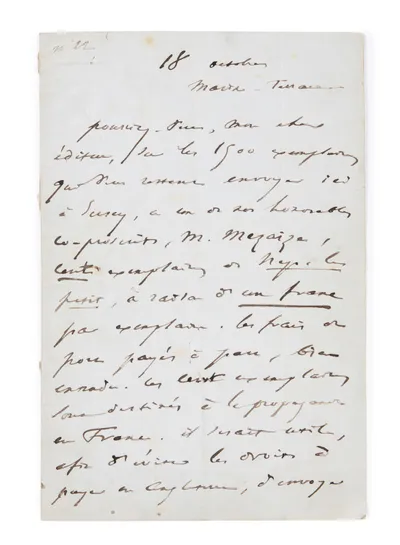 18 octobre
Marine-Terrace
pourriez-vous, mon cher
éditeur, sur les 1500 exemplaires
que vous envoyer ici
à Jersey, à un de nos honorables
co-proscrits, M. Mezaize,
cent exemplaires de Nap. le
petit, à raison d'un franc
par exemplaire. les frais de
port payés à part, bien
entendu. ces cent exemplaires
sont destinés à la propagande
en France. il serait utile,
afin d'éviter les droits à
payer en Angleterre, d'envoyer